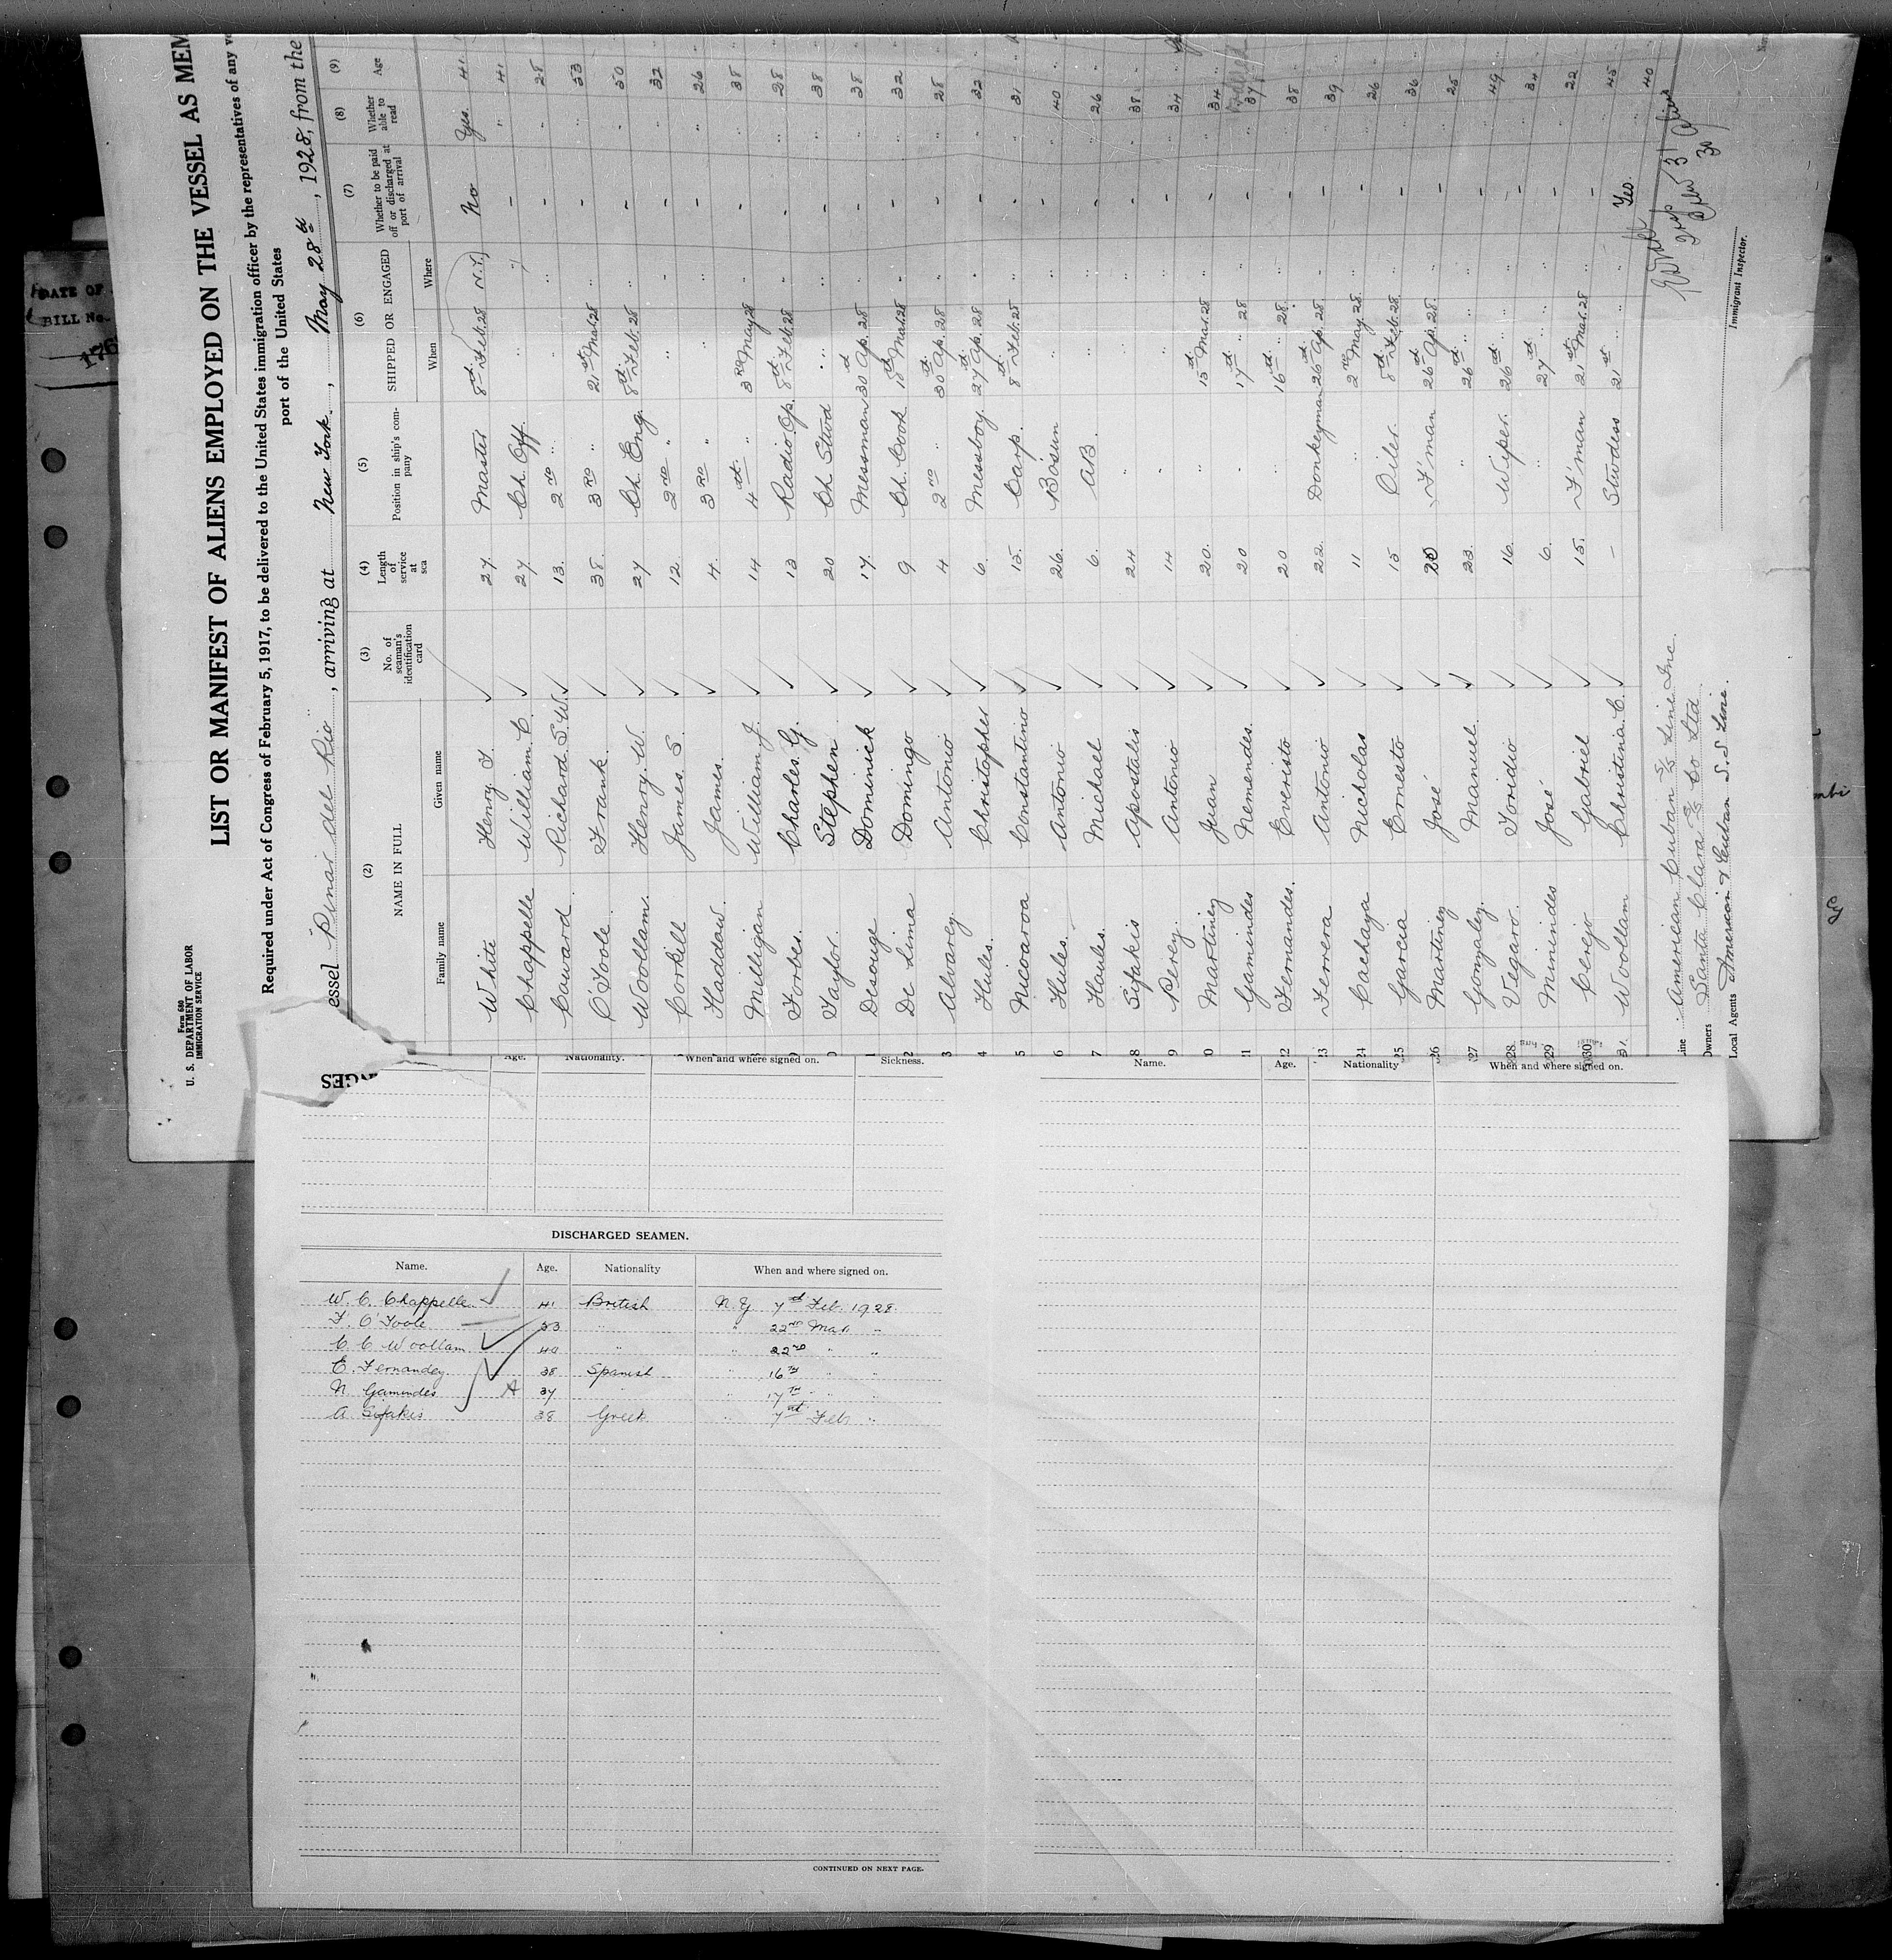 Form 680
U. S. DEPARTMENT OF LABOR
IMMIGRATION SERVICE
LIST OR MANIFEST OF ALIENS EMPLOYED ON THE VESSEL AS MEM
Required under Act of Congress of February 5, 1917, to be delivered to the United States immigration officer by the representatives of any
port of the United States
essel Pinar del Rio, arriving at New York, May 28th, 1928, from the
(2) (3) (4) (5) (6) (7) (8) (9)
NAME IN FULL No. of seaman's identification card Length of service at sea Position in ship's company SHIPPED OR ENGAGED Whether to be paid off or discharged at port of arrival Whether able to read Age
Family name Given name When Where
White Henry T. 27. Master 8th Feb. 28 N.Y. No Yes. 41
Chappelle William. C. 27 Ch. Off. " " - " 41
Caward. Richard. S. W. 13. 2nd " " " - " 28
O'Toole. Frank. 38. 3rd " 21st Mar. 28 " - " 53
Woollam. Henry. W. 27 Ch. Eng. 8th Feb. 28 " - " 50
Corkill James. S. 12. 2nd " " - - " 32
Haddow. James. 4. 3rd " " " - " 26
Milligan William. J. 14 4th " 3rd May 28 " - " 38
Forbes. Charles. G. 13 Radio. Op. 8th Feb. 28 " - " 28
Taylor. Stephen 20 Ch. Stwd " " - " 38
Desouge Dominick 17. Messman 30th Ap. 28 " - " 38
De Lima Domingo 9. Ch. Cook 18th Mar. 28 " - " 32
Alvarez. Antonio 4 2nd " 30th Ap. 28 " - " 28
Hules. Christopher 6. Messboy. 27th Ap. 28 " - " 32
Nicoaroa Constantino 15. Carp. 8th Feb. 28 " - " 31
Hules. Antonio 26. Bosun " " - " 40
Houles. Michael 6. AB. " " - " 26
Sifakis Apostalis 24 " " " - " 38
Perez. Antonio 14 " " " - " 34
Martinez Juan 20. " 15th Mar. 28 " - " 34
Gamindes Nemendes. 20 " 17th " 28 " - " 37
Fernandes. Everisto 20 " 16th " 28. " - " 38
Ferrera Antonio 22. Donkeyman 26th Ap. 28 " - " 39
Cachaya Nicholas 11 " 2nd May. 28 " - " 26
Garcia Ernesto 15 Oiler. 8th Feb. 28 " - " 36
Martinez José 20 F'man 26th Ap. 28 " - " 25
Gonzalez. Manuel. 23. " 26th " " " - "
28 Vegaro. Toridio 16. Wiper. 26th " " " - " 49
29 Minindes José 6. " 27th " " " - " 34
30 Cerejo Gabriel 15. F'man 21st Mar. 28 " - " 22
31. Woollam Christinia. C. - Stwdess 21st " " " Yes. " 45
40
ine American Cuban S/S Line Inc.
Owners Santa Clara S/S Co Ltd.
Local Agents American & Cuban S.S. Line.
Immigrant Inspector.
Age. Nationality. When and where signed on. Sickness.
Name. Age. Nationality When and where signed on.
DISCHARGED SEAMEN.
Name. Age. Nationality When and where signed on.
W. C. Chappelle. 41 British N.Y 7th Feb. 1928.
F. O'Toole 53 " " 22nd Mar. "
C. C. Woollam 40 " " 22nd " "
E. Fernandez 38 Spanish " 16th " "
N. Gamindes A 37 " " 17th " "
A. Sifakis 38 Greek " 7th Feb "
CONTINUED ON NEXT PAGE.
DATE OF
BILL No.